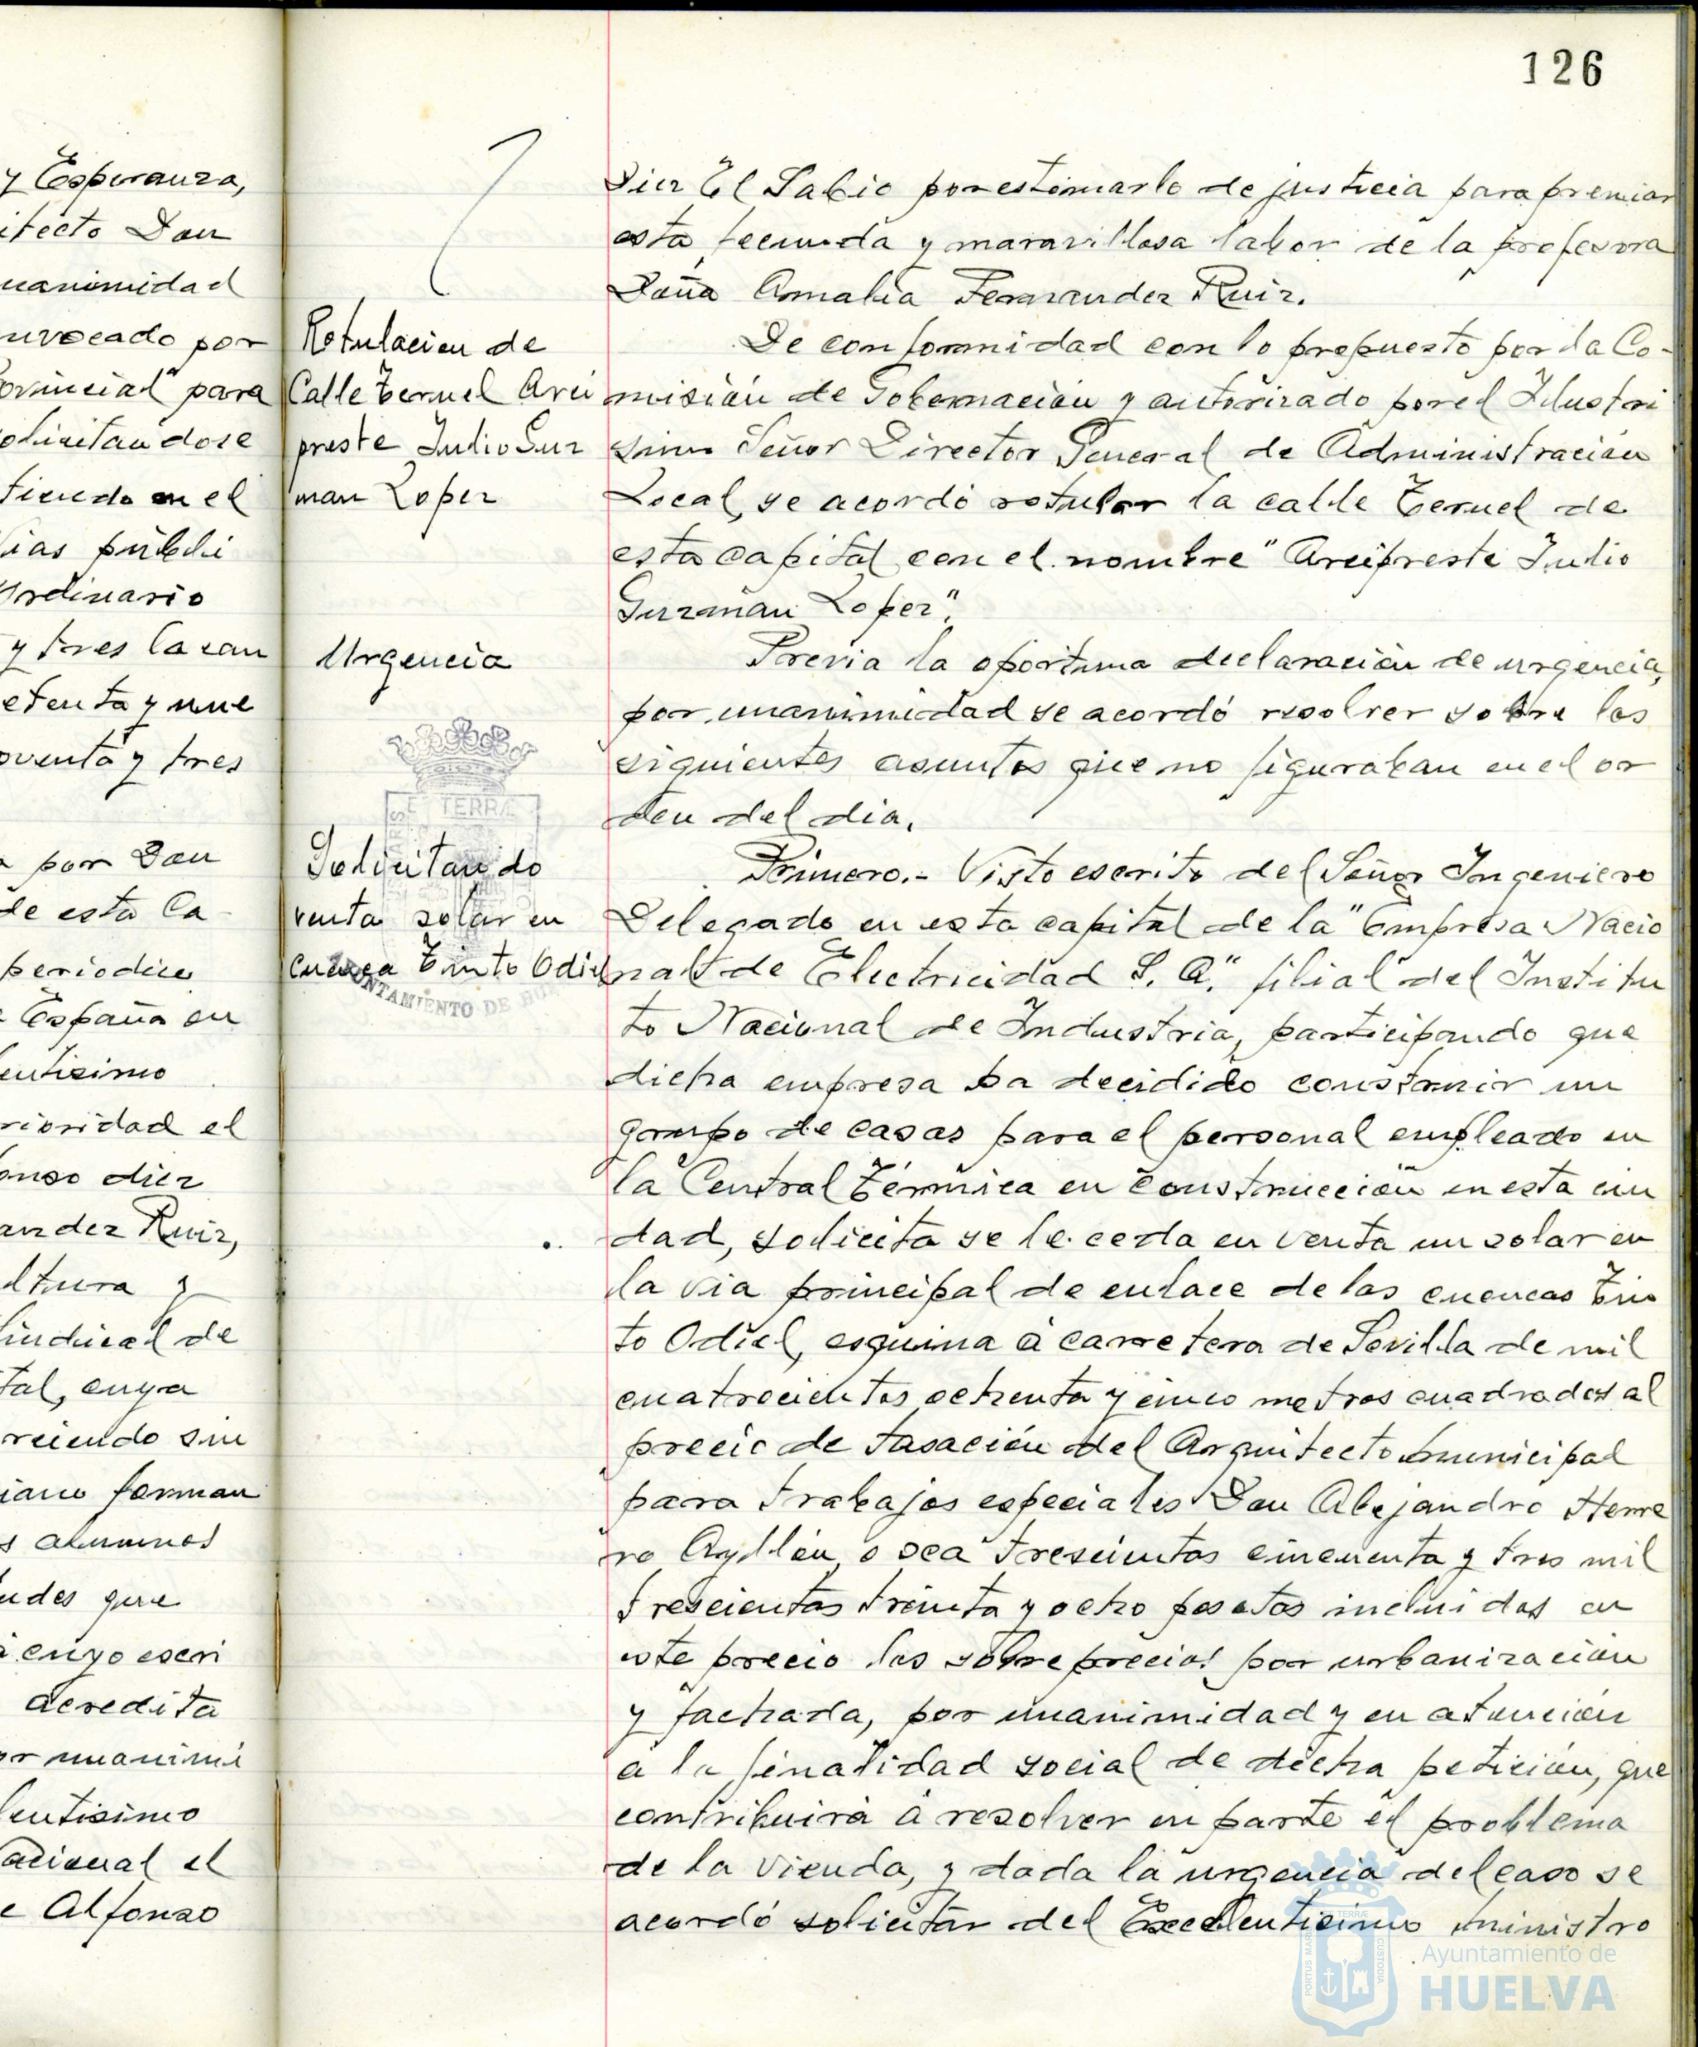 126
y Esperanza,
itecto Don
uanimidad
nvocado por
ovincial" para
olicitandose
tiendo en el
ias públi
ordinario
y tres la can
etenta y nue
oventa y tres
por Don
de esta Ca-
periodica
España en
lentisimo
rioridad el
onso diez
andez Ruiz,
ltura y
Sindical de
tal, cuya
reciendo sin
forman
s alumnos
udes que
a cuyo escri
acredita
or unanimi
lentisimo
acional el
e Alfonso
Rotulacion de
Calle Teruel Arci
preste Julio Guz
man Lopez
Urgencia
Solicitando
venta solar en
cuenca Tinto Odiel
TERRÆ
AYUNTAMIENTO DE HU
Diez El Sabio por estimarlo de justicia para premiar
esta fecunda y maravillosa labor de la profesora
Doña Amalia Fernandez Ruiz.
De conformidad con lo propuesto por la Co-
misión de Gobernación y autorizado por el Ilustri
simo Señor Director General de Administración
Local, se acordó rotular la calle Teruel de
esta capital con el nombre "Arcipreste Julio
Guzmán Lopez".
Previa la oportuna declaración de urgencia,
por unanimidad se acordó resolver sobre los
siguientes asuntos que no figuraban en el or
den del dia.
Primero.- Visto escrito del Señor Ingeniero
Delegado en esta capital de la "Empresa Nacio
nal de Electricidad S. A." filial del Institu
to Nacional de Industria, participando que
dicha empresa ha decidido construir un
grupo de casas para el personal empleado en
la Central Térmica en construcción en esta ciu
dad, solicita se le ceda en venta un solar en
la via principal de enlace de las cuencas Tin
to Odiel, esquina á carretera de Sevilla de mil
cuatrocientos ochenta y cinco metros cuadrados al
precio de tasación del Arquitecto municipal
para trabajos especiales Don Alejandro Herre
ro Ayllón, o sea trescientas cincuenta y tres mil
trescientas treinta y ocho pesetas incluidos en
este precio los sobreprecios por urbanización
y fachada, por unanimidad y en atención
a la finalidad social de dicha petición, que
contribuirá á resolver en parte el problema
de la vienda, y dada la urgencia del caso se
acordó solicitar del Excelentisimo ministro
Ayuntamiento de
HUELVA